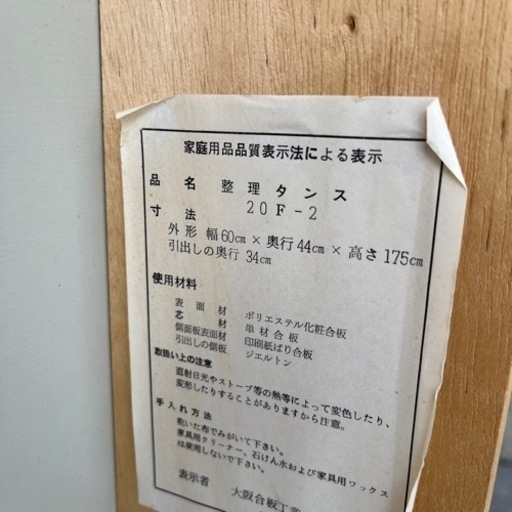 家庭用品品質表示法による表示
品名 整理タンス
20F-2
寸法
外形 幅60cm × 奥行44cm × 高さ175cm
引出しの奥行 34cm
使用材料
表面材 ポリエステル化粧合板
芯材 単材合板
側面板表面材 印刷紙ばり合板
引出しの側板 ジェルトン
取扱い上の注意
直射日光やストーブ等の熱等によって変色したり、
変形したりすることがありますから注意。
手入れ方法
乾いた布でみがいて下さい。
家具用クリーナー、石けん水および家具用ワックス
は使用しないで下さい。
表示者 大阪合板工業